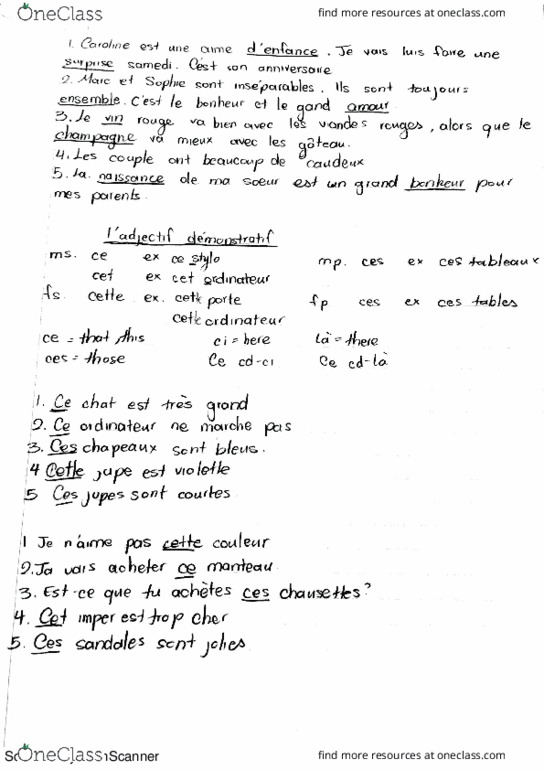 OneClass find more resources at oneclass.com
1. Caroline est une amie d'enfance. Je vais luis faire une
surprise samedi. C'est son anniversaire
2. Marc et Sophie sont inséparables. Ils sont toujours
ensemble. C'est le bonheur et le gand amour.
3. Le vin rouge va bien avec les viandes rouges, alors que le
champagne va mieux avec les gâteau.
4. Les couple ont beaucoup de caudeux
5. La naissance de ma soeur est un grand bonheur pour
mes parents.
L'adjectif démonstratif
ms. ce ex ce stylo mp. ces ex ces tableaux
cet ex cet ordinateur
fs. cette ex. cette porte fp ces ex ces tables
cette ordinateur
ce = that, this ci = here là = there
ces = those Ce cd-ci Ce cd-là
1. Ce chat est très grand
2. Ce ordinateur ne marche pas
3. Ces chapeaux sont bleus.
4 Cette jupe est violette
5 Ces jupes sont courtes
1 Je n'aime pas cette couleur
2. Ja vais acheter ce manteau
3. Est-ce que tu achètes ces chausettes?
4. Cet imper est trop cher
5. Ces sandales sont jolies
OneClass Scanner find more resources at oneclass.com